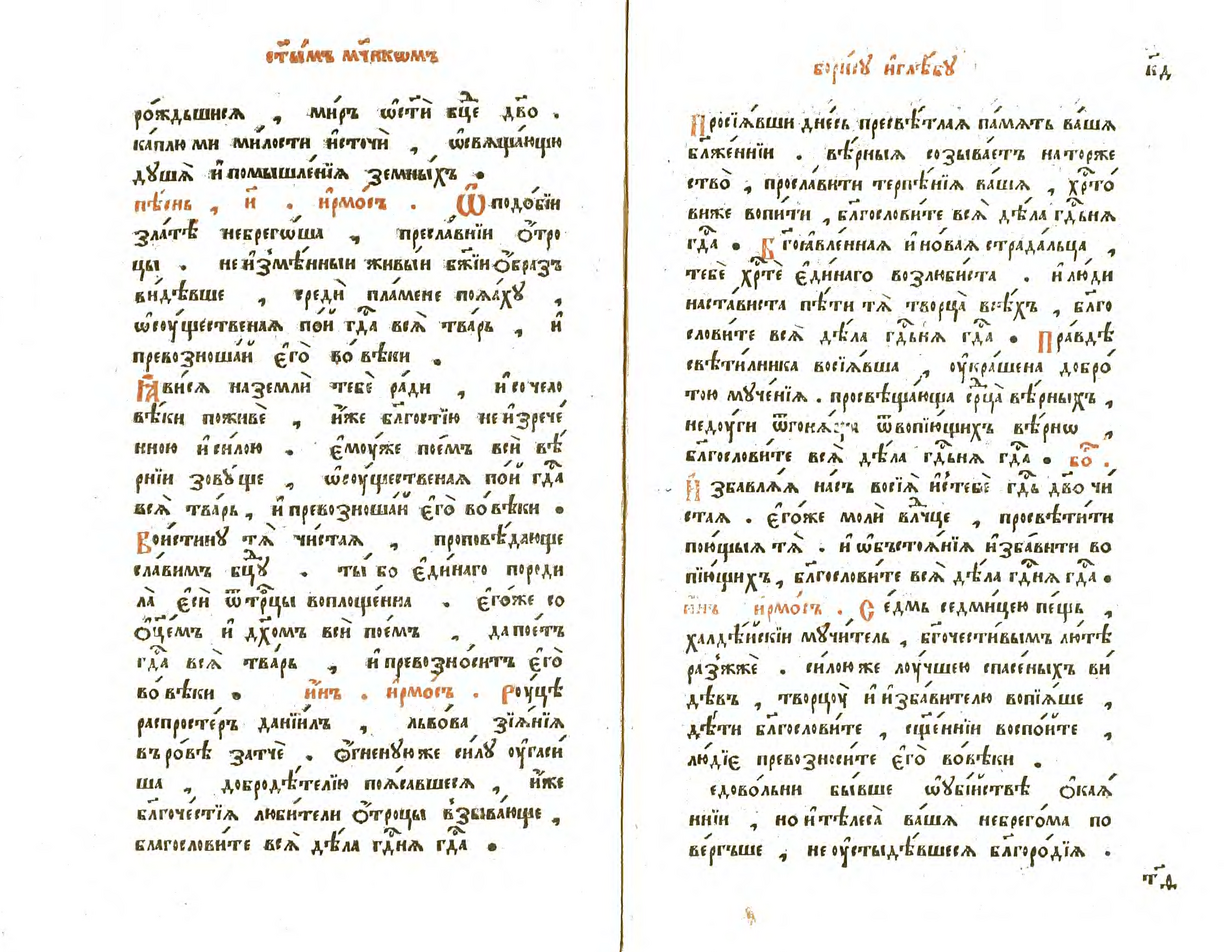 ст҃ы́мъ мч҃нкѡмъ
ро́ждьшиися , ми́ръ ѡ҆чⷭ҇ти бц҃е дв҃о .
ка́плю ми ми́лости и҆сточѝ , ѡ҆свѧща́ющю
дꙋ́шѧ и҆ помышле́нїѧ земны́хъ .
пѣ́снь , и҃ . і҆рмо́съ . Ѿ подо́бїи
зла́тѣ небрего́ша , пресла́внїи ѻ҆́тро
цы . неи҆змѣ́нныи живы́и бж҃їи ѻ҆́бразъ
ви́дѣвше , средѝ пла́мене поѧ́хꙋ ,
ѡ҆сꙋ́щественаѧ по́и гдⷭ҇а всѧ̀ тва́рь , и҆
превозноша́й є҆го̀ во́ вѣки .
Ꙗ҆ви́сѧ наземлѝ тебѐ ра́ди , и҆ со чело
вѣ́ки поживѐ , и҆́же бл҃гостїю неи҆зрече́
нною и҆ си́лою . є҆мꙋ́же пое́мъ всѝ вѣ́
рнїи зовꙋ́ще , ѡ҆сꙋ́щественаѧ по́и гдⷭ҇а
всѧ̀ тва́рь , и҆ превозноша́й є҆го̀ во́ вѣки .
Вои́стинꙋ тѧ̀ чи́стаѧ , проповѣ́дающе
сла́вимъ бцⷣꙋ . ты́ бо є҆ди́наго породи
ла̀ є҆сѝ ѿ трⷪ҇цы воплоще́нна . є҆го́же со
ѻ҆ц҃е́мъ и҆ дх҃омъ всѝ пое́мъ , да пое́тъ
гдⷭ҇а всѧ̀ тва́рь , и҆ превозно́ситъ є҆го̀
во́ вѣки . и҆́нъ . і҆рмо́съ . Рꙋ́цѣ
распросте́ръ данїи́лъ , льво́ва зїѧ́нїѧ
въ ро́вѣ затчѐ . ѻ҆́гненꙋю же си́лꙋ оу҆гаси́
ша , добродѣ́телїю поѧ́савшесѧ , и҆́же
бл҃гоче́стїѧ люби́тели ѻ҆́троцы взыва́юще ,
благослови́те всѧ̀ дѣ́ла гдⷭ҇нѧ гдⷭ҇а .
бори́сꙋ и҆ глѣ́бꙋ
к҃д
Просїѧ́вши дне́сь пресвѣ́тлаѧ па́мѧть ва́шѧ
бл҃же́ннїи . вѣ́рныѧ созыва́етъ на торже
ство̀ , просла́вити терпѣ́нїѧ ва́шѧ , хрⷭ҇то́
ви же вопи́ти , бл҃гослови́те всѧ̀ дѣ́ла гдⷭ҇ьнѧ
гдⷭ҇а . Бг҃оꙗвле́ннаѧ и҆ но́ваѧ страда́льца ,
тебѐ хрⷭ҇тѐ є҆ди́наго возлю́биста . и҆ лю́ди
наста́виста пѣ́ти тѧ̀ творца̀ всѣ́хъ , бл҃го
слови́те всѧ̀ дѣ́ла гдⷭ҇ьнѧ гдⷭ҇а . Пра́вдѣ
свѣти́лника восїѧ́вша , оу҆кра́шена добро́
тою мꙋче́нїѧ . просвѣща́юща срⷣца вѣ́рныхъ ,
недꙋ́ги ѿ вопїю́щихъ вѣ́рнѡ ,
бл҃гослови́те всѧ̀ дѣ́ла гдⷭ҇ьнѧ гдⷭ҇а . бо҃ .
И҆збавлѧ́ѧ на́съ восїѧ̀ и҆с тебѐ гдⷭ҇ь дв҃о чи
стаѧ . є҆го́же молѝ влⷣчце , просвѣти́ти
пою́щыѧ тѧ̀ . и҆ ѡ҆бъстоѧ́нїѧ и҆зба́вити во
пїю́щихъ , бл҃гослови́те всѧ̀ дѣ́ла гдⷭ҇нѧ гдⷭ҇а .
и҆́нъ і҆рмо́съ . Се́дмь седми́цею пе́щь ,
халдѣ́йскїи мꙋчи́тель , бг҃очести́вымъ лю́тѣ
разжжѐ . си́лою же лꙋ́чшею спасе́ныхъ ви́
дѣвъ , творцꙋ̀ и҆ и҆зба́вителю вопїѧ́ше ,
дѣ́ти бл҃гослови́те , сщ҃е́ннїи воспо́йте ,
лю́дїє превозноси́те є҆го̀ во́вѣки .
едово́льни бы́вше ѡ҆ᲂу҆бі́йствѣ ѻ҆каѧ́
ннїи , но и҆ тѣлеса̀ ва́шѧ небрего́ма по
ве́ргъше , не оу҆стыдѣ́вшесѧ бл҃горо́дїѧ .